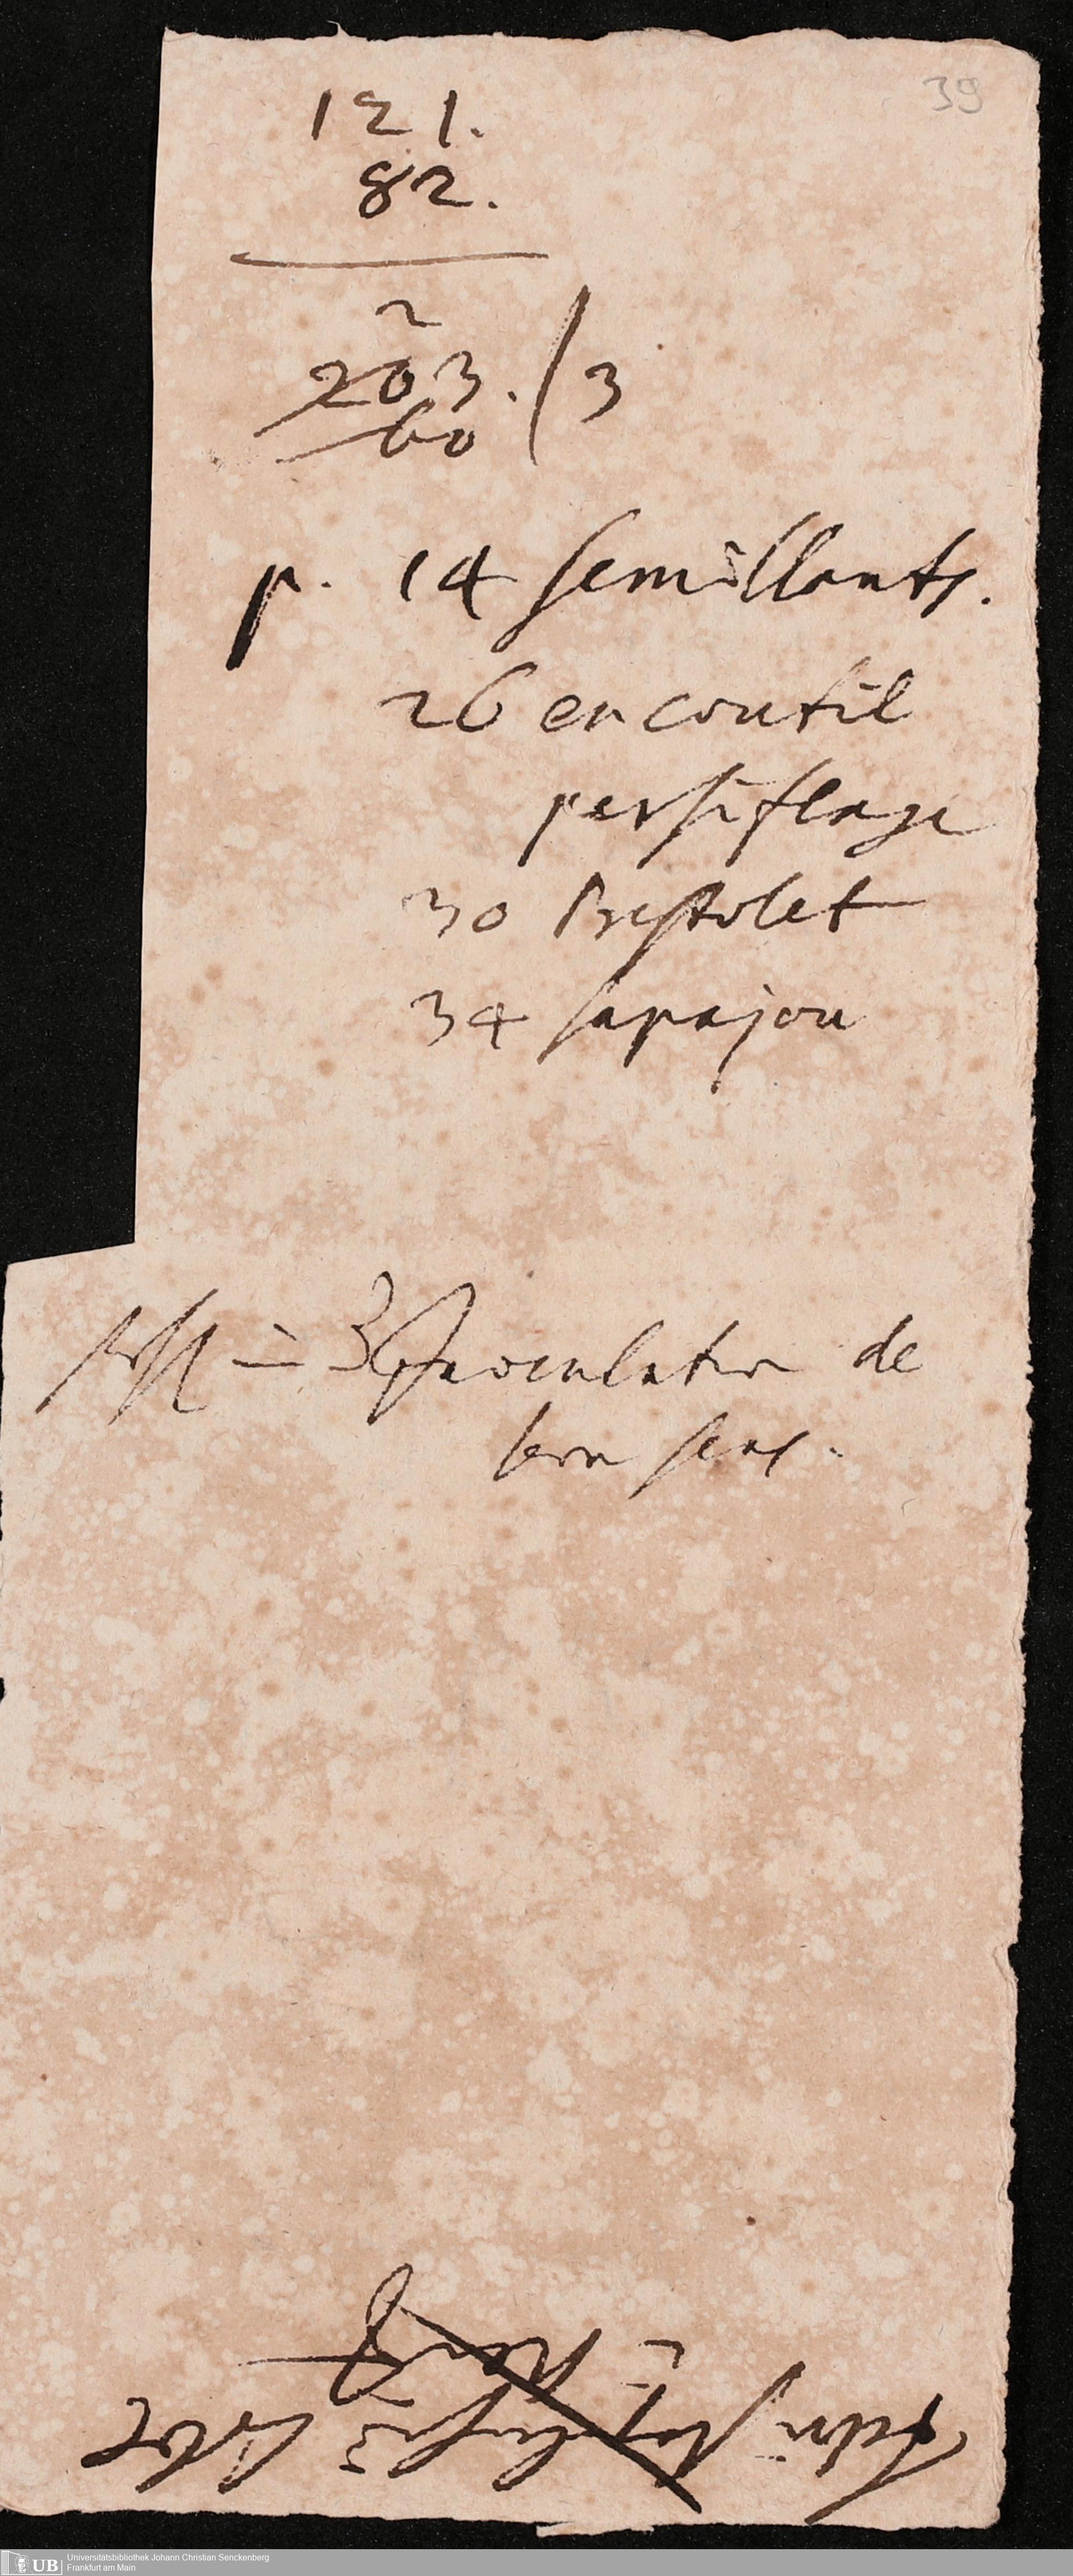 39
121.
82.
2
203. / 3
60
p. 14 semillants.
26 en coutil
persiflage
30 Pistolet
34 sapajou
36 Inoculation de
bon sens.
UB Universitätsbibliothek Johann Christian Senckenberg
Frankfurt am Main